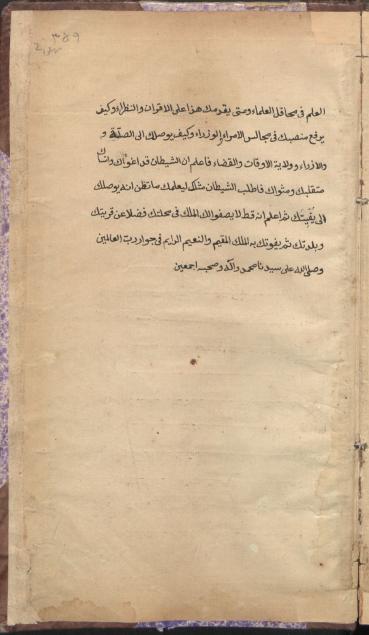 ٣٥٩
العلم فى محافل العلماء ومتى يقدمك هذا على الاقران والنظراء وكيف
يرفع منصبك فى مجالس الامراء والوزراء وكيف يوصلك الى الصلة و
والادرار وولاية الاوقات والقضاء فاعلم ان الشيطان قد اغواك وانساك
متقلبك ومثواك فاطلب الشيطان مثلك ليعلمك ما تظن انه يوصلك
الى بُغْيَتك ثم اعلم ان قط لا يصفو لك الملك فى محلتك فضلا عن قريتك
وبلدتك ثم يفوتك به الملك المقيم والنعيم الدايم فى جوار رب العالمين
وصلى الله على سيدنا محمد واله وصحبه اجمعين